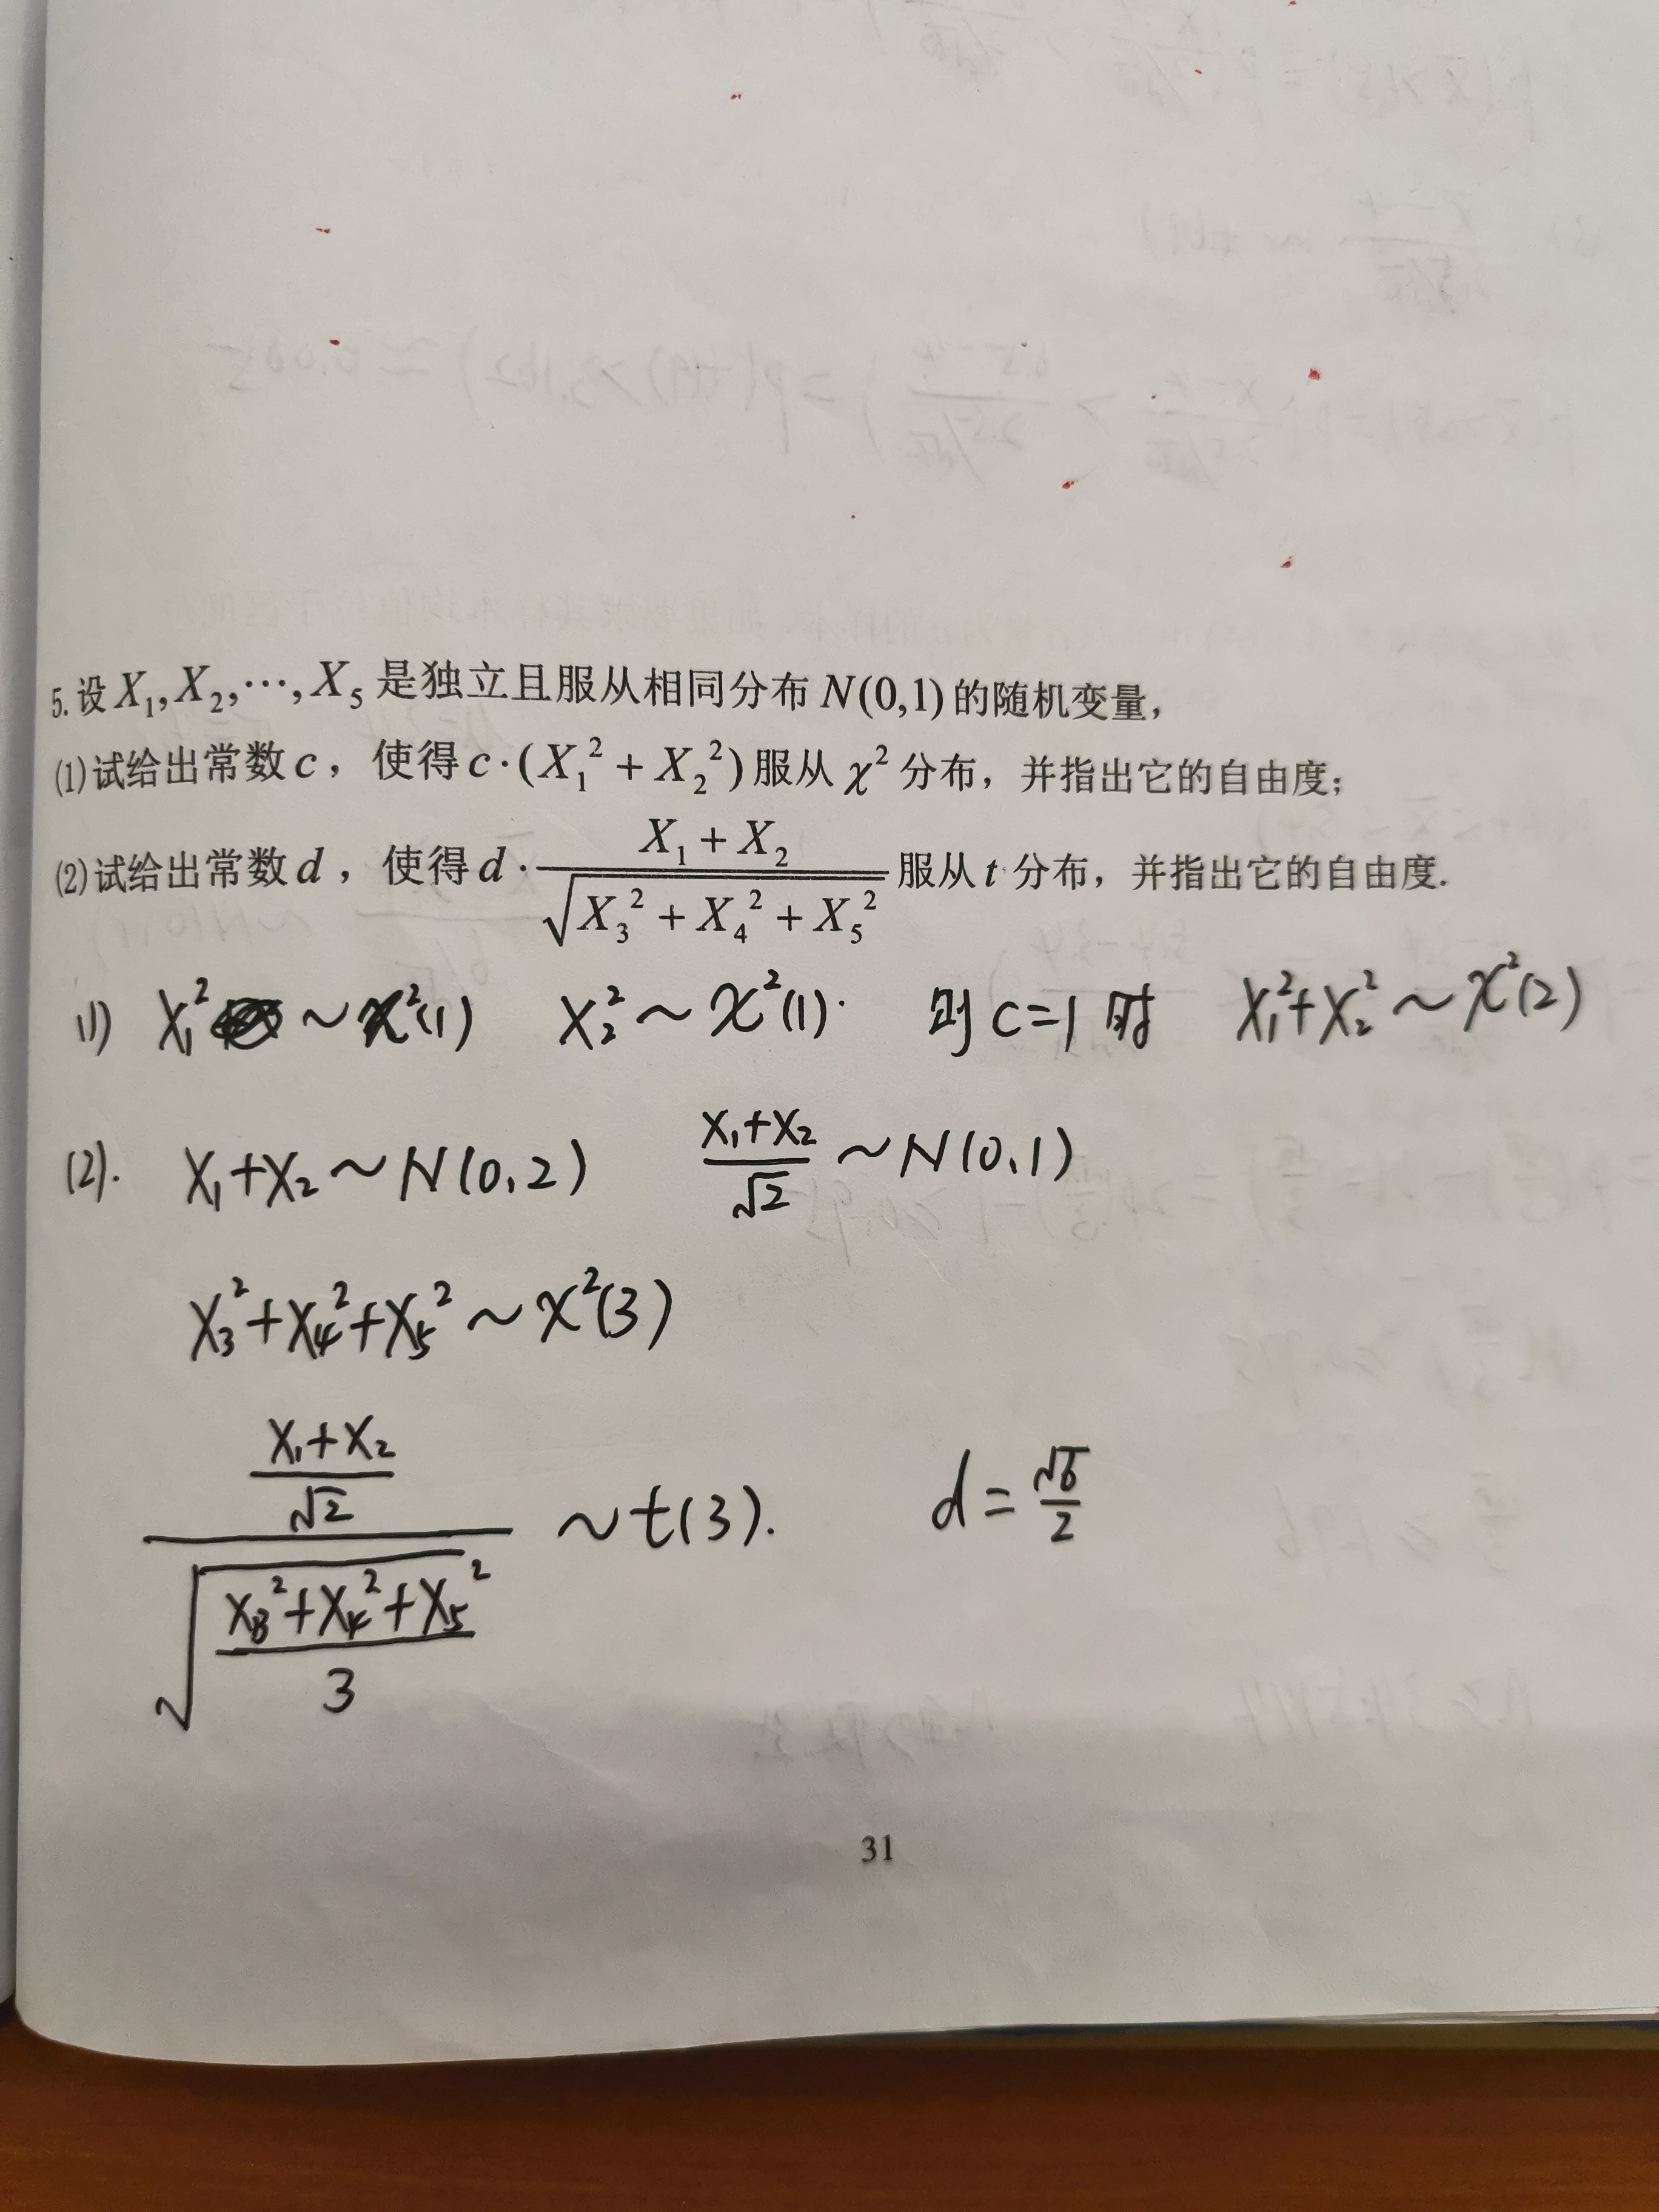 5.设 X₁,X₂,⋯,X₅ 是独立且服从相同分布 N(0,1) 的随机变量，
(1)试给出常数 c，使得 c·(X₁²+X₂²) 服从 χ² 分布，并指出它的自由度；
(2)试给出常数 d，使得 d·\frac{X₁+X₂}{\sqrt{X₃²+X₄²+X₅²}} 服从 t 分布，并指出它的自由度.
(1) X₁² ~ χ²(1) X₂² ~ χ²(1). 则 c=1 时 X₁²+X₂² ~ χ²(2)
(2). X₁+X₂ ~ N(0,2) \frac{X₁+X₂}{\sqrt{2}} ~ N(0,1)
X₃²+X₄²+X₅² ~ χ²(3)
\frac{\frac{X₁+X₂}{\sqrt{2}}}{\sqrt{\frac{X₃²+X₄²+X₅²}{3}}} ~ t(3). d=\frac{\sqrt{6}}{2}
31